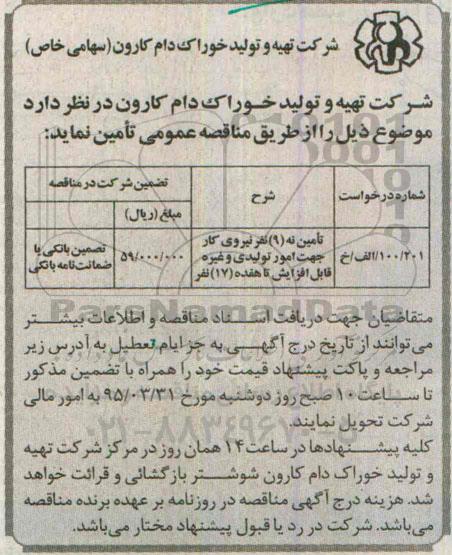 شرکت تهیه و تولید خوراک دام کارون (سهامی خاص)
شرکت تهیه و تولید خوراک دام کارون در نظر دارد
موضوع ذیل را از طریق مناقصه عمومی تأمین نماید:
شماره درخواست شرح تضمین شرکت در مناقصه
مبلغ (ریال)
۱۰۰/۲۰۱/الف/خ تأمین نه (۹) نفر نیروی کار ۵۹/۰۰۰/۰۰۰ تصمین بانکی یا
جهت امور تولیدی و غیره ضمانت‌نامه بانکی
قابل افزایش تا هفده (۱۷) نفر
متقاضیان جهت دریافت اسناد مناقصه و اطلاعات بیشتر
می‌توانند از تاریخ درج آگهی به جز ایام تعطیل به آدرس زیر
مراجعه و پاکت پیشنهاد قیمت خود را همراه با تضمین مذکور
تا ساعت ۱۰ صبح روز دوشنبه مورخ ۹۵/۰۳/۳۱ به امور مالی
شرکت تحویل نمایند.
کلیه پیشنهادها در ساعت ۱۴ همان روز در مرکز شرکت تهیه
و تولید خوراک دام کارون شوشتر بازگشائی و قرائت خواهد
شد. هزینه درج آگهی مناقصه در روزنامه بر عهده برنده مناقصه
می‌باشد. شرکت در رد یا قبول پیشنهاد مختار می‌باشد.
ParsNamadData
۰۲۱-۸۸۳۴۹۶۷۰